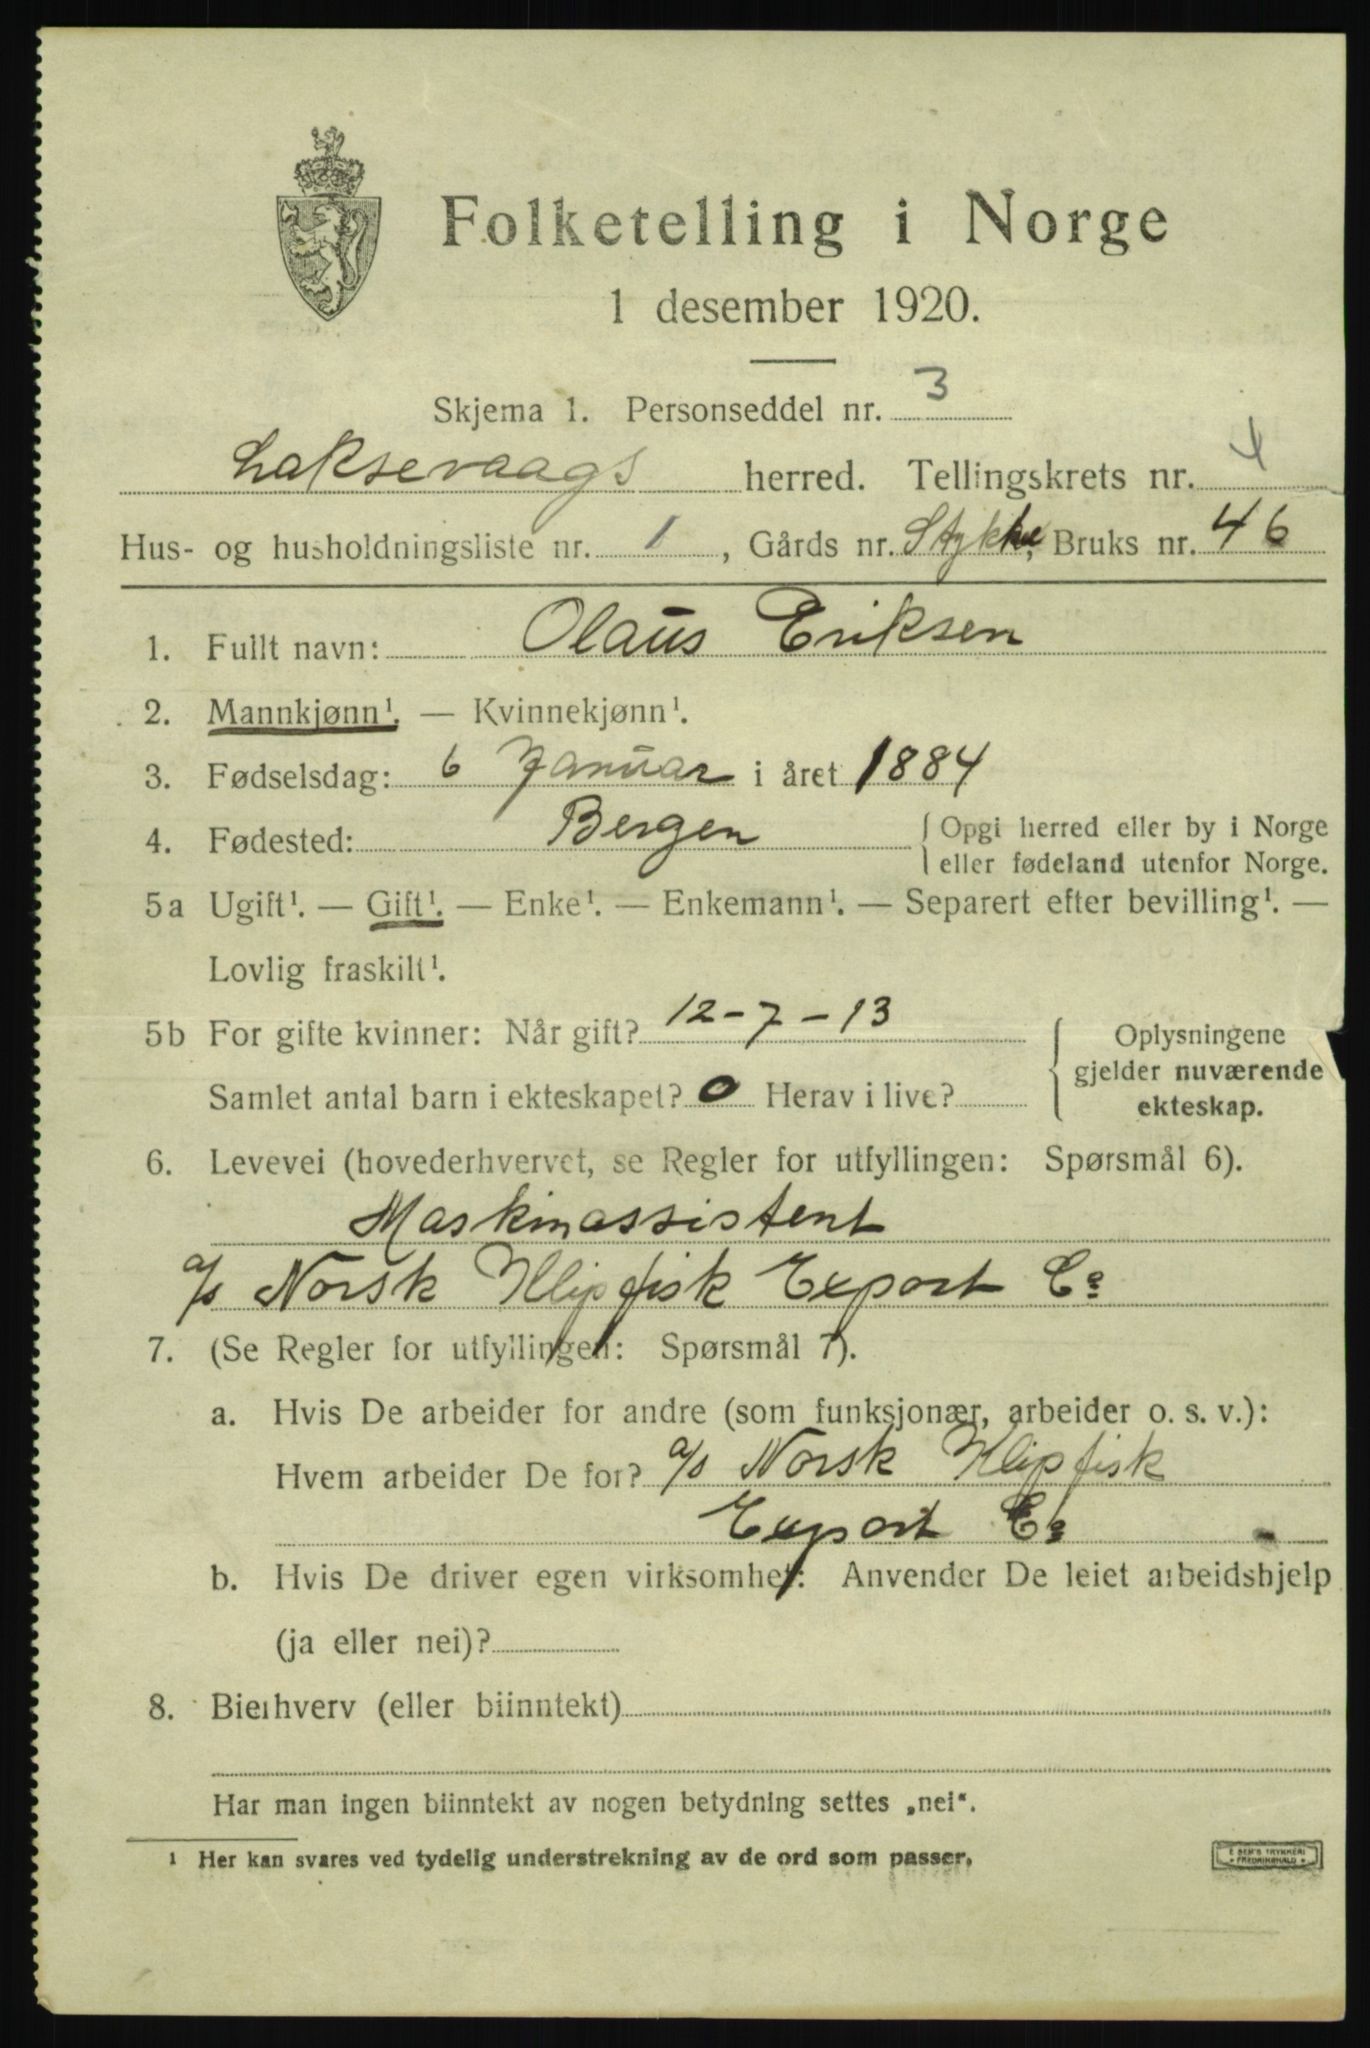 Folketelling i Norge
1 desember 1920.
Skjema 1. Personseddel nr. 3
Laksevaags herred. Tellingskrets nr. 4
Hus- og husholdningsliste nr. 1, Gårds nr. Stykke, Bruks nr. 46
1. Fullt navn: Olaus Eriksen
2. Mannkjønn¹. — Kvinnekjønn¹.
3. Fødselsdag: 6 Januar i året 1884
4. Fødested: Bergen { Opgi herred eller by i Norge
eller fødeland utenfor Norge.
5a Ugift¹. — Gift¹. — Enke¹. — Enkemann¹. — Separert efter bevilling¹. —
Lovlig fraskilt¹.
5b For gifte kvinner: Når gift? 12-7-13 { Oplysningene
gjelder nuværende
Samlet antal barn i ekteskapet? 0 Herav i live?
ekteskap.
6. Levevei (hovederhvervet, se Regler for utfyllingen: Spørsmål 6).
Maskinassistent
a/s Norsk Klipfisk Export Co
7. (Se Regler for utfyllingen: Spørsmål 7).
a. Hvis De arbeider for andre (som funksjonær, arbeider o. s. v.):
Hvem arbeider De for? a/s Norsk Klipfisk
Export Co
b. Hvis De driver egen virksomhet: Anvender De leiet arbeidshjelp
(ja eller nei)?
8. Bierhverv (eller biinntekt)
Har man ingen biinntekt av nogen betydning settes „nei“.
¹ Her kan svares ved tydelig understrekning av de ord som passer.
E SEM'S TRYKKERI
• FREDRIKSHALD •